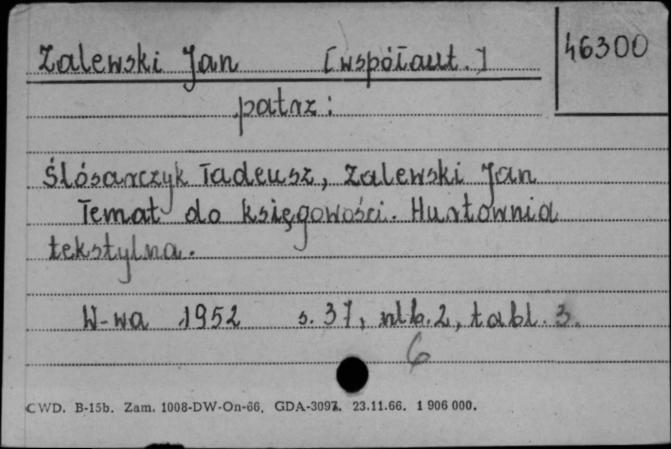 Zalewski Jan [współaut.]
46300
patrz:
Ślósarczyk Tadeusz, Zalewski Jan
Temat do księgowości. Hurtownia
tekstylna.
W-wa 1952 s. 37, nlb. 2, tabl. 3.
6
CWD. B-15b. Zam. 1008-DW-On-66. GDA-3097. 23.11.66. 1 906 000.